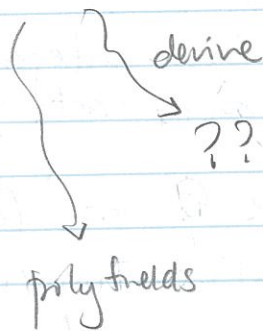 derive
??
poly fields